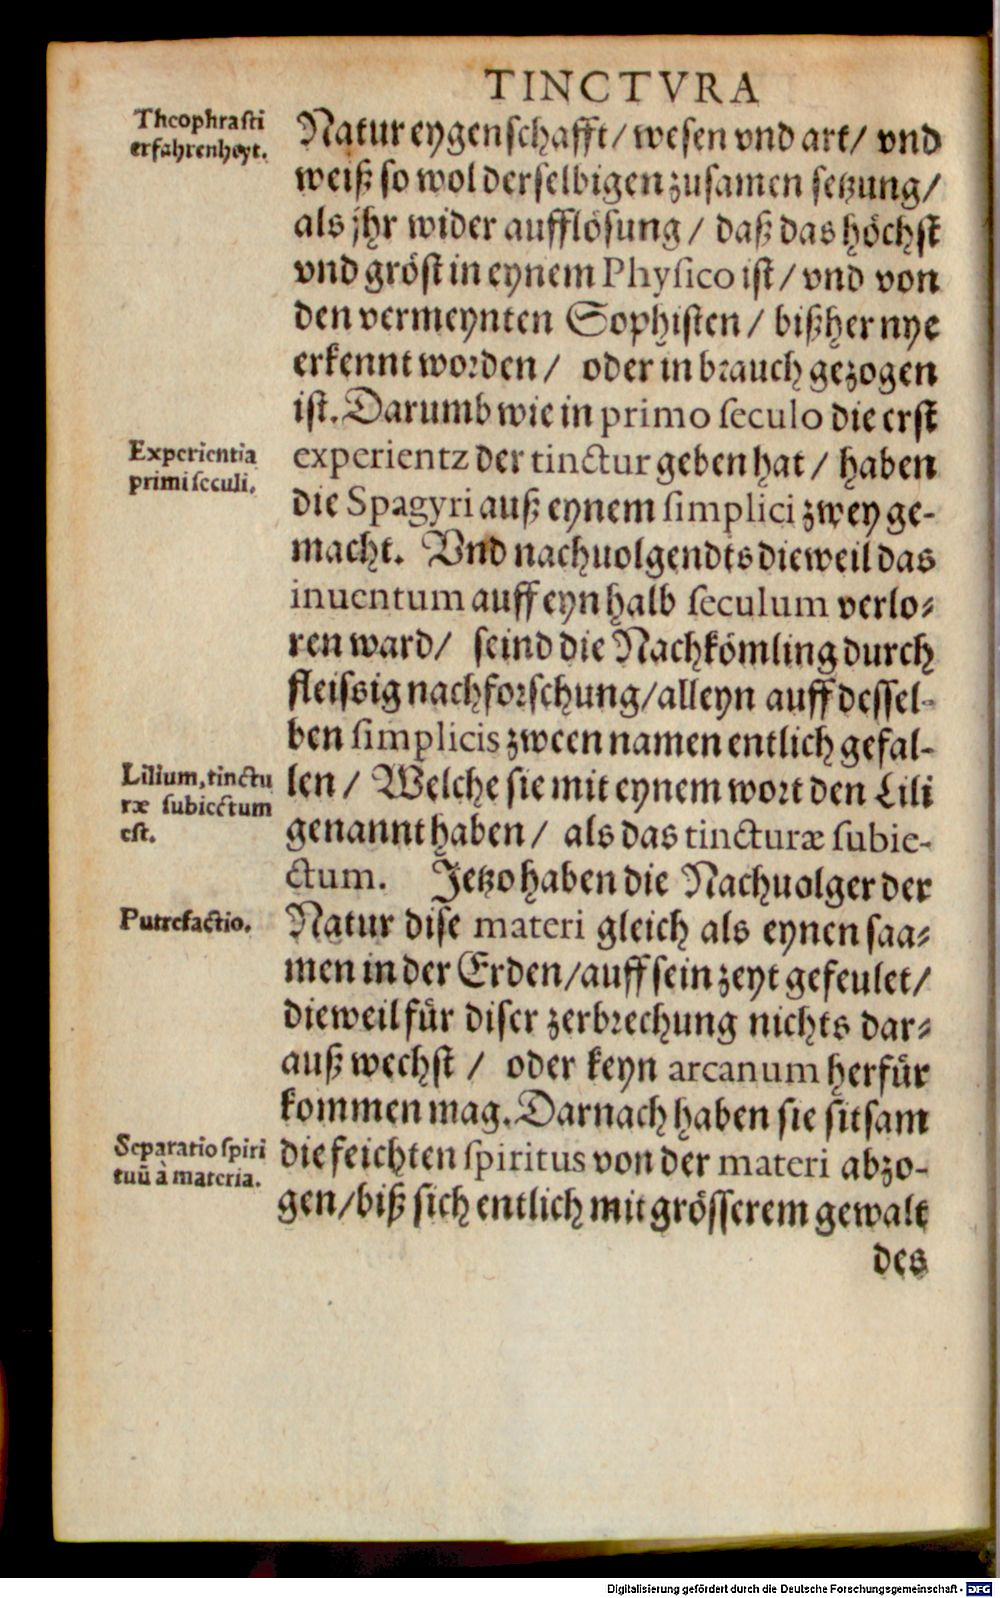 TINCTVRA
Theophrasti
erfahrenheyt.
Natur eygenschafft/ wesen vnd art/ vnd
weiß so wol derselbigen zusamen setzung/
als jhr wider aufflösung/ daß das höchst
vnd gröst in eynem Physico ist/ vnd von
den vermeynten Sophisten/ bißher nye
erkennt worden/ oder in brauch gezogen
ist. Darumb wie in primo seculo die erst
Experientia
primi seculi.
experientz der tinctur geben hat/ haben
die Spagyri auß eynem simplici zwey ge-
macht. Vnd nachuolgendts dieweil das
inuentum auff eyn halb seculum verlo-
ren ward/ seind die Nachkömling durch
fleissig nachforschung/ alleyn auff dessel-
ben simplicis zween namen entlich gefal-
Lilium, tinctu
ræ subiectum
est.
len/ Welche sie mit eynem wort den Lili
genannt haben/ als das tincturæ subie-
ctum. Jetzo haben die Nachuolger der
Putrefactio.
Natur dise materi gleich als eynen saa-
men in der Erden/ auff sein zeyt gefeulet/
dieweil für diser zerbrechung nichts dar-
auß wechst/ oder keyn arcanum herfür
kommen mag. Darnach haben sie sitsam
Separatio spiri
tuũ à materia.
die feichten spiritus von der materi abzo-
gen/ biß sich entlich mit grösserem gewalt
des
Digitalisierung gefördert durch die Deutsche Forschungsgemeinschaft - DFG